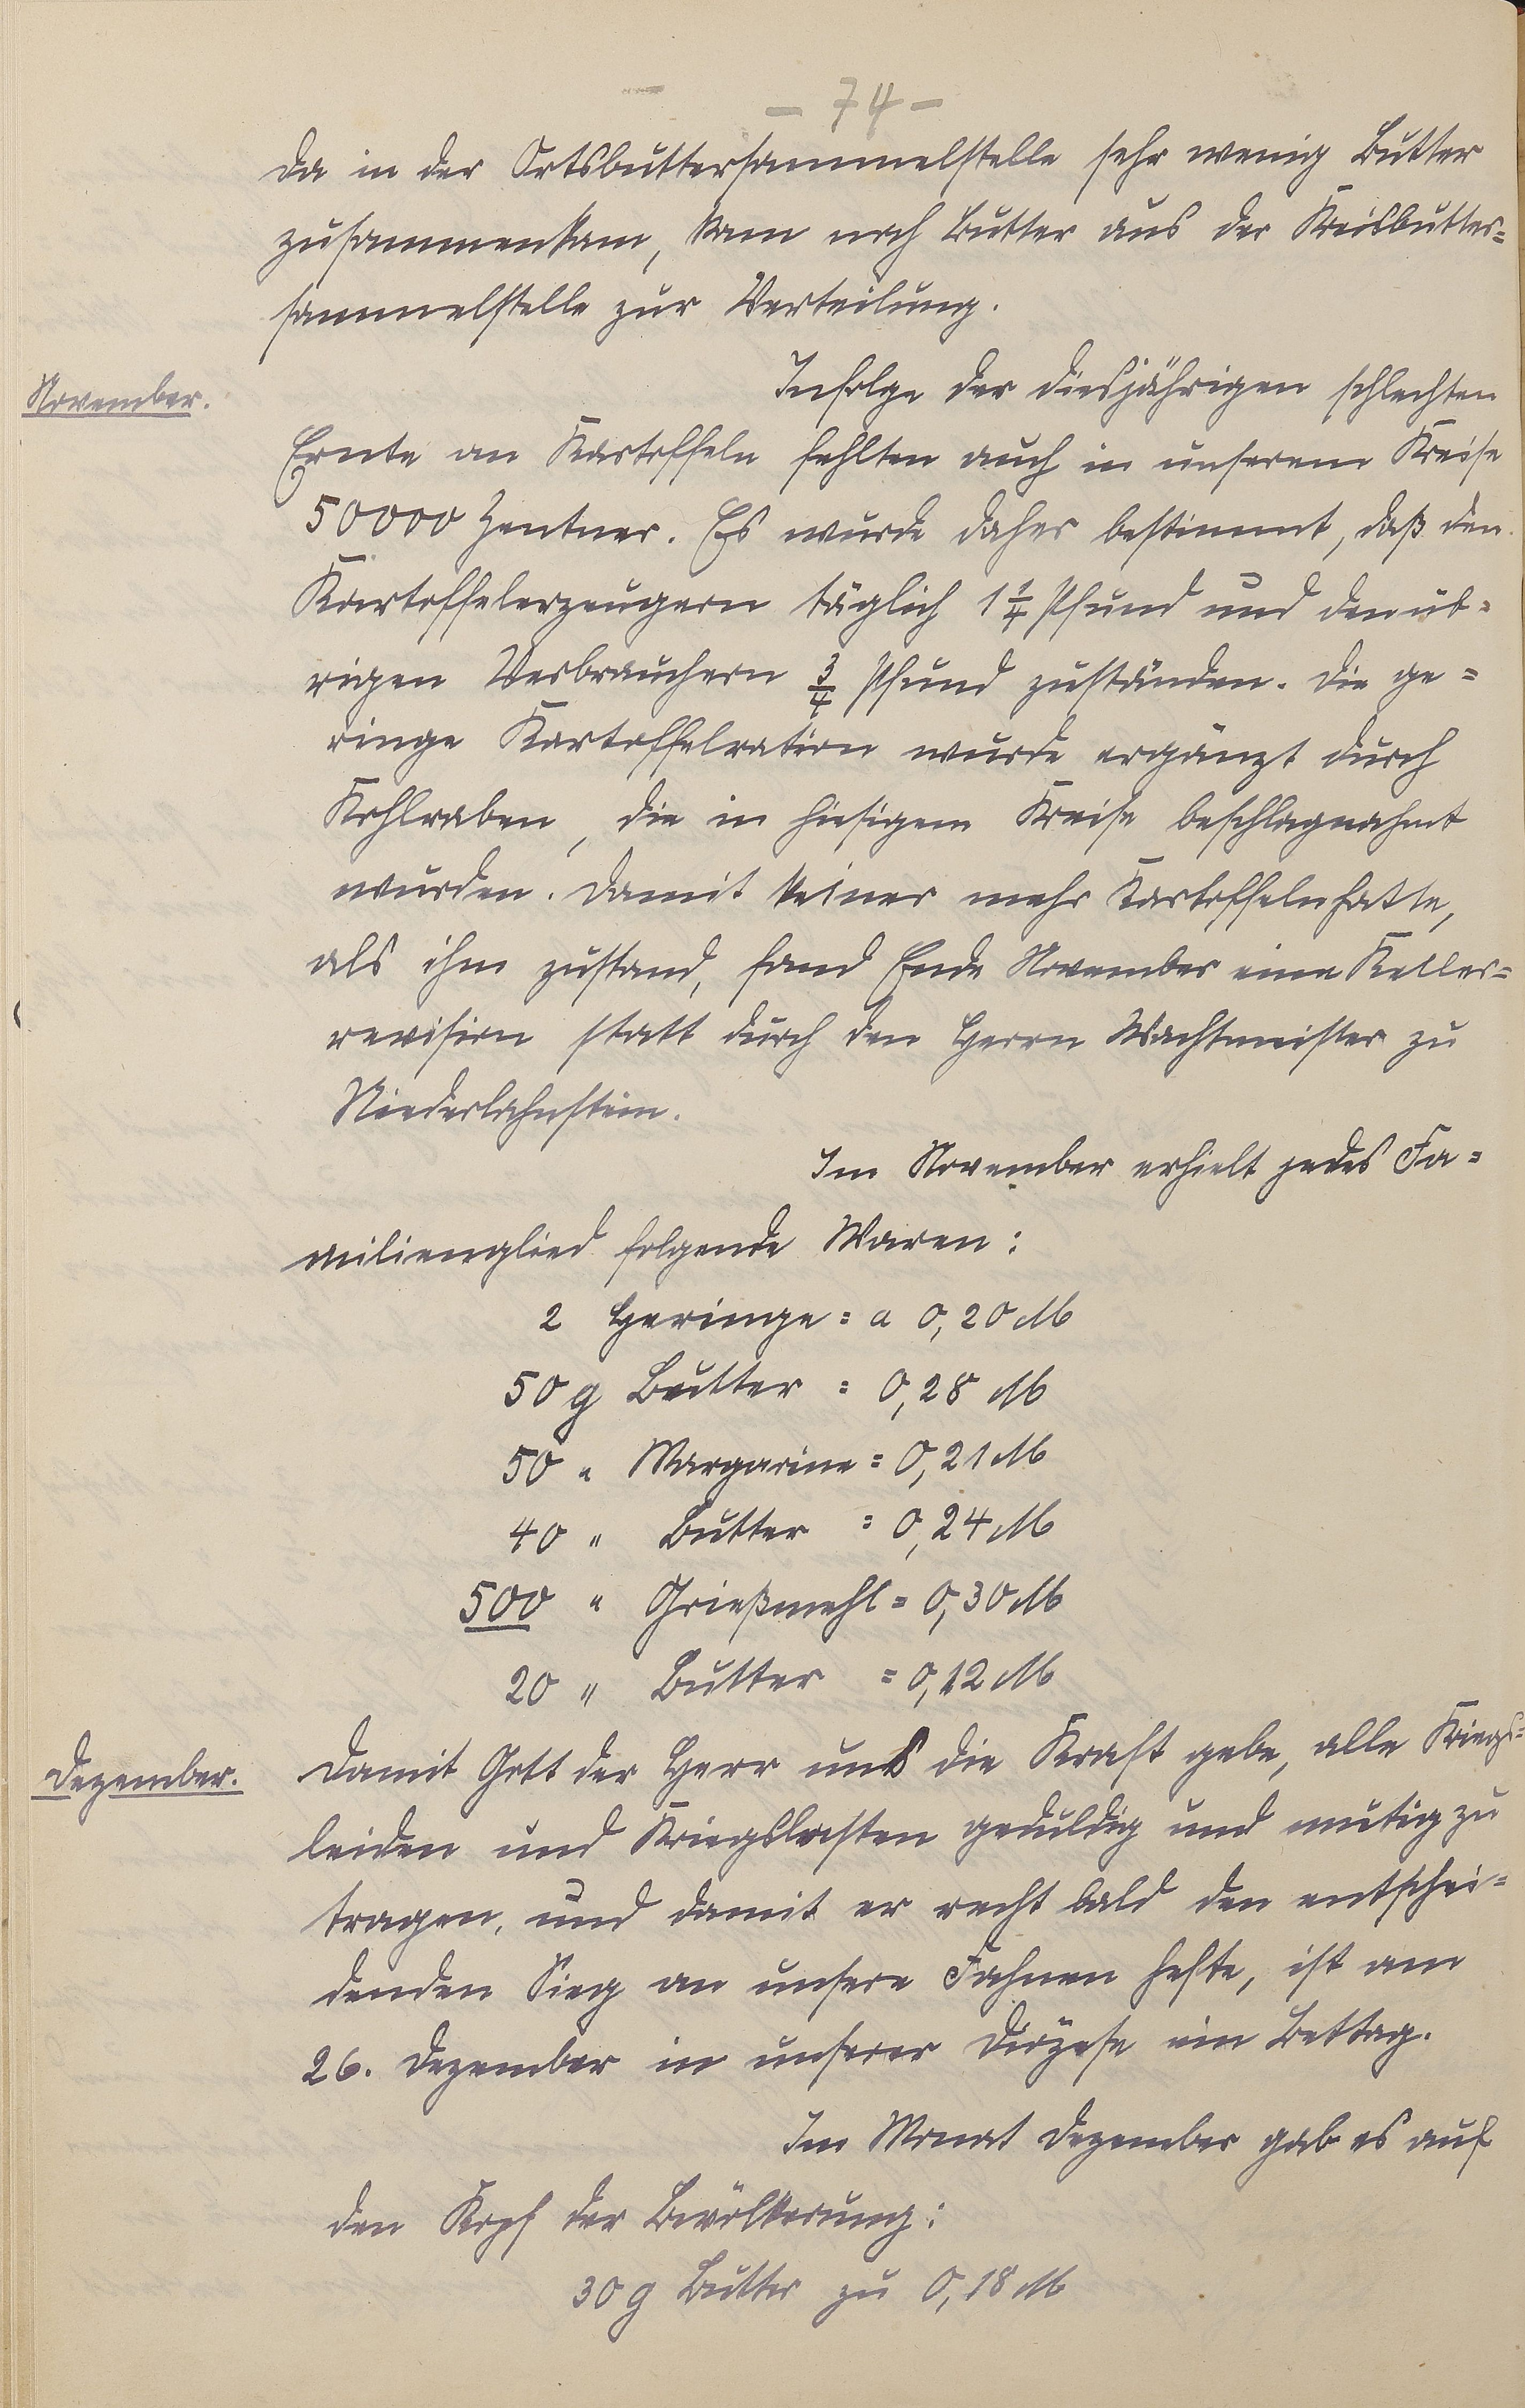 - 74 -
da in der Ortsbuttersammelstelle sehr wenig Butter
zusammenkam, kam noch Butter aus der Kreisbutter=
sammelstelle zur Verteilung.
November.
Infolge der diesjährigen schlechten
Ernte an Kartoffeln fehlten auch in unserem Kreise
50000 Zentner. Es wurde daher bestimmt, daß den
Kartoffelerzeugern täglich 1 1/4 Pfund und den üb=
rigen Verbrauchern 3/4 Pfund zuständen. Die ge=
ringe Kartoffelration wurde ergänzt durch
Kohlraben, die in hiesigem Kreise beschlagnahmt
wurden. Damit keiner mehr Kartoffeln hatte,
als ihm zustand, fand Ende November eine Keller=
revision statt durch den Herrn Wachtmeister zu
Niederlahnstein.
Im November erhielt jedes Fa=
milienglied folgende Waren:
2 Heringe = a 0,20 M
50 g Butter = 0,28 M
50 " Margarine = 0,21 M
40 " Butter = 0,24 M
500 " Grießmehl = 0,30 M
20 " Butter = 0,12 M
Dezember.
Damit Gott der Herr uns die Kraft gebe, alle Kriegs=
leiden und Kriegslasten geduldig und mutig zu
tragen, und damit er recht bald den entschei=
denden Sieg an unsere Fahnen hefte, ist am
26. Dezember in unserer Diözese ein Bettag.
Im Monat Dezember gab es auf
den Kopf der Bevölkerung:
30 g Butter zu 0,18 M